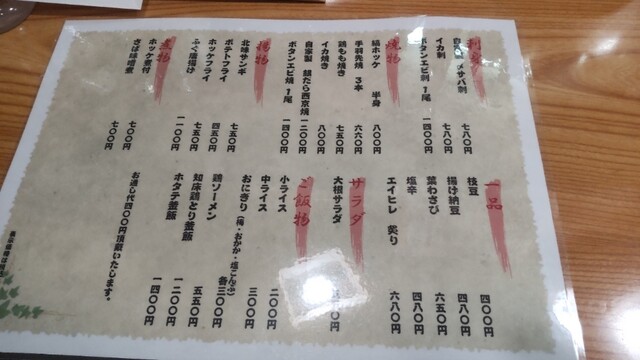 刺身
メサバ刺 七八〇円
イカ刺 七八〇円
ボタンエビ刺 1尾 一四〇〇円
焼物
縞ホッケ 半身 八〇〇円
手羽先焼 3本 六六〇円
鶏もも焼き 七五〇円
イカ焼き 八〇〇円
自家製 銀だら西京焼 一二〇〇円
ボタンエビ焼 1尾 一四〇〇円
揚物
北味サンギ 七五〇円
ポテトフライ 四五〇円
ホッケフライ 七五〇円
ふぐ唐揚げ 一一〇〇円
煮物
ホッケ煮付 七〇〇円
さば味噌煮 七〇〇円
一品
枝豆 四〇〇円
揚げ納豆 四八〇円
葉わさび 六五〇円
塩辛 四八〇円
エイヒレ 炙り 六八〇円
サラダ
大根サラダ
ご飯物
小ライス 二〇〇円
中ライス 三〇〇円
おにぎり(梅・おかか・塩こんぶ) 各三〇〇円
鶏ソーメン 五五〇円
知床鶏とり釜飯 一二〇〇円
ホタテ釜飯 一四〇〇円
お通し代四〇〇円頂戴いたします。